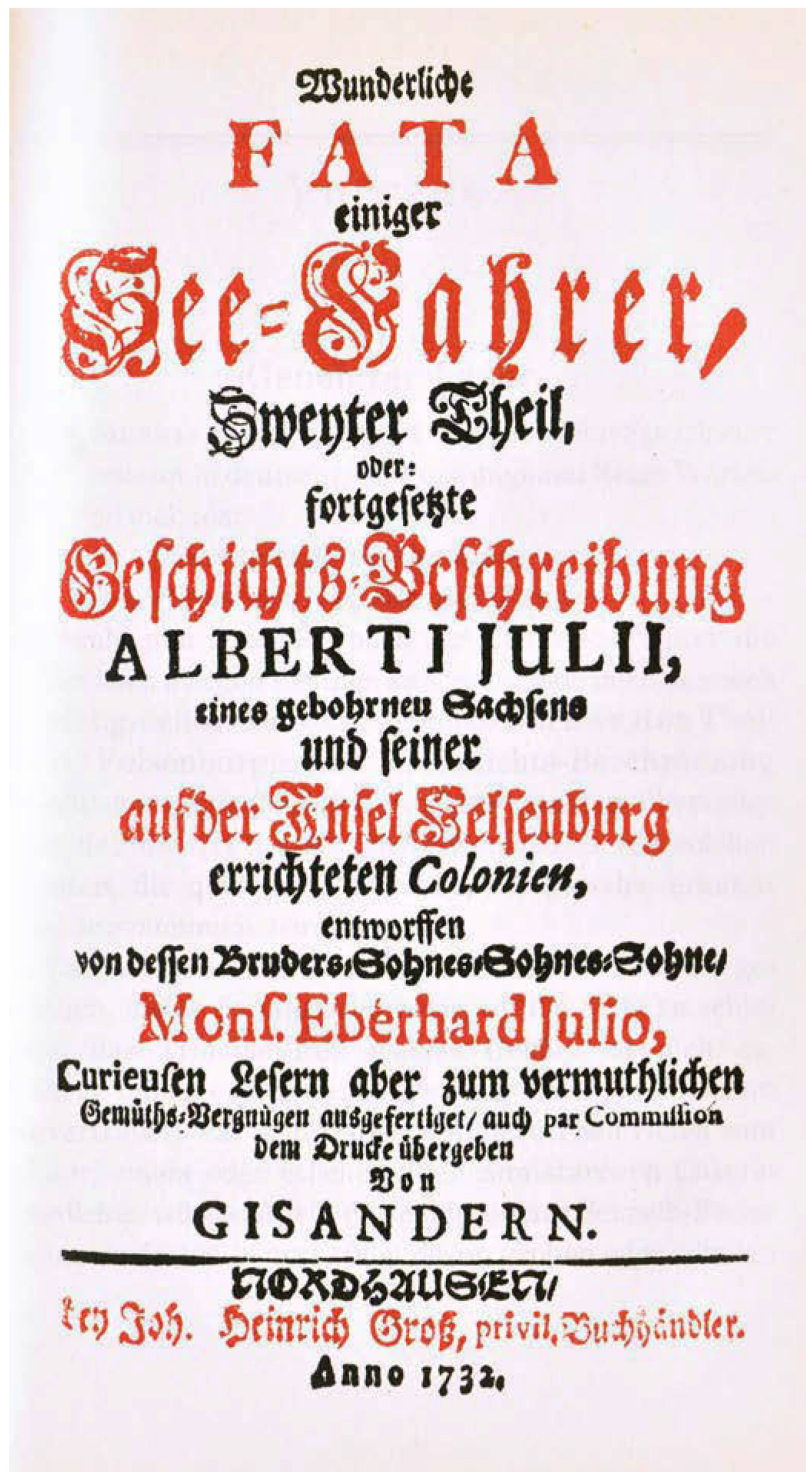 Wunderliche
FATA
einiger
See-Fahrer,
Zweyter Theil,
oder:
fortgesetzte
Geschichts-Beschreibung
ALBERTI JULII,
eines gebohrnen Sachsens
und seiner
auf der Insel Felsenburg
errichteten Colonien,
entworffen
von dessen Bruders-Sohnes-Sohnes-Sohne/
Monſ Eberhard Julio,
Curieusen Lesern aber zum vermuthlichen
Gemüths-Vergnügen ausgefertiget/ auch par Commission
dem Drucke übergeben
Von
GISANDERN.
NORDHAUSEN/
bey Joh. Heinrich Groß, privil. Buchhändler.
Anno 1732.